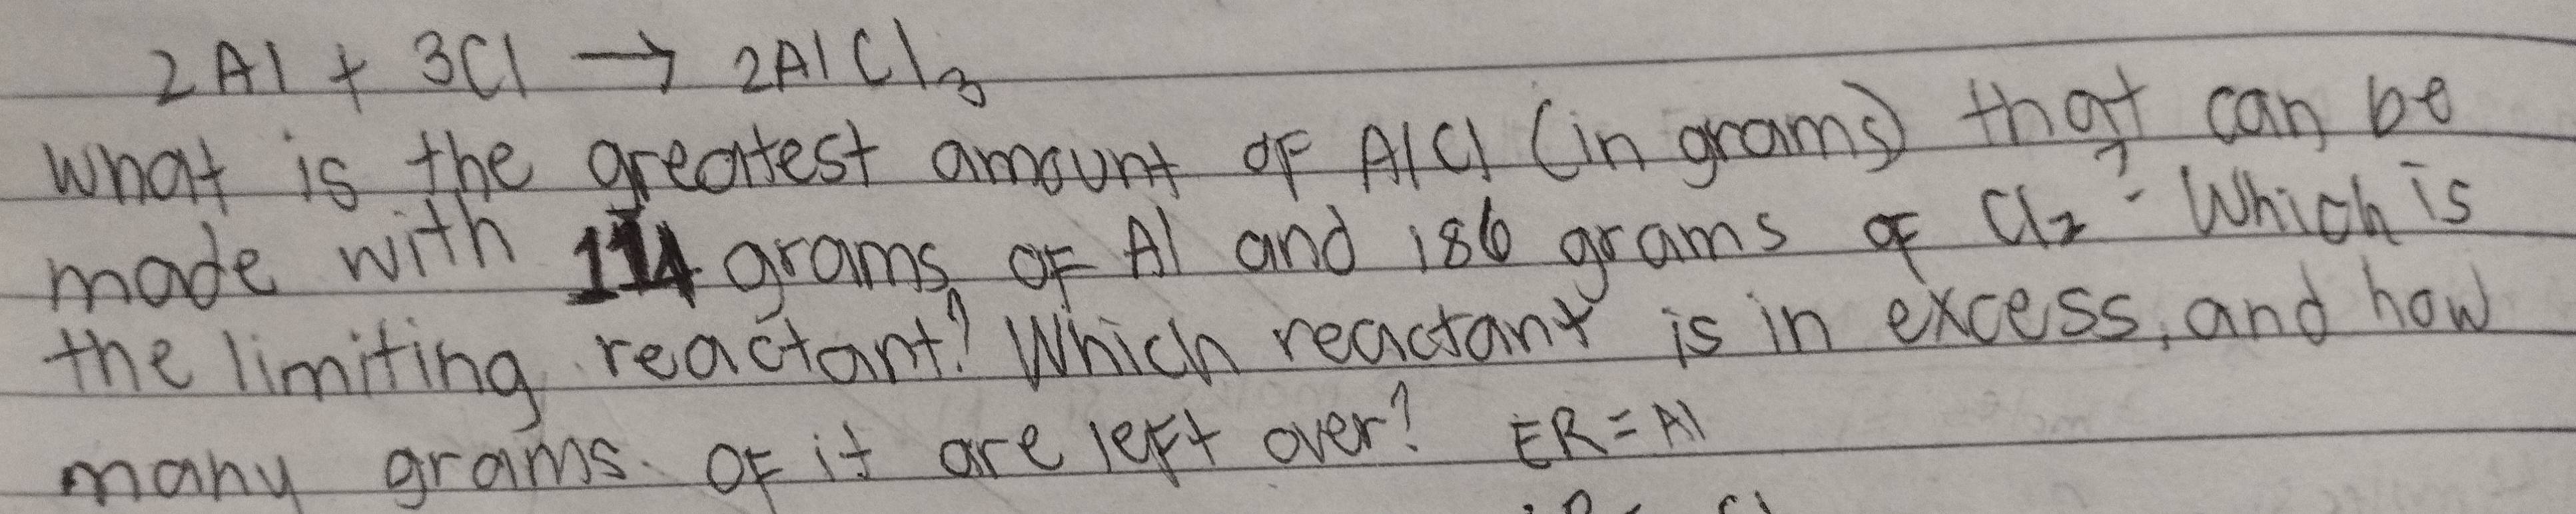 2Al + 3Cl → 2AlCl3
what is the greatest amount of AlCl (in grams) that can be
made with 114 grams of Al and 186 grams of Cl2? Which is
the limiting reactant? Which reactant is in excess, and how
many grams of it are left over? ER = Al